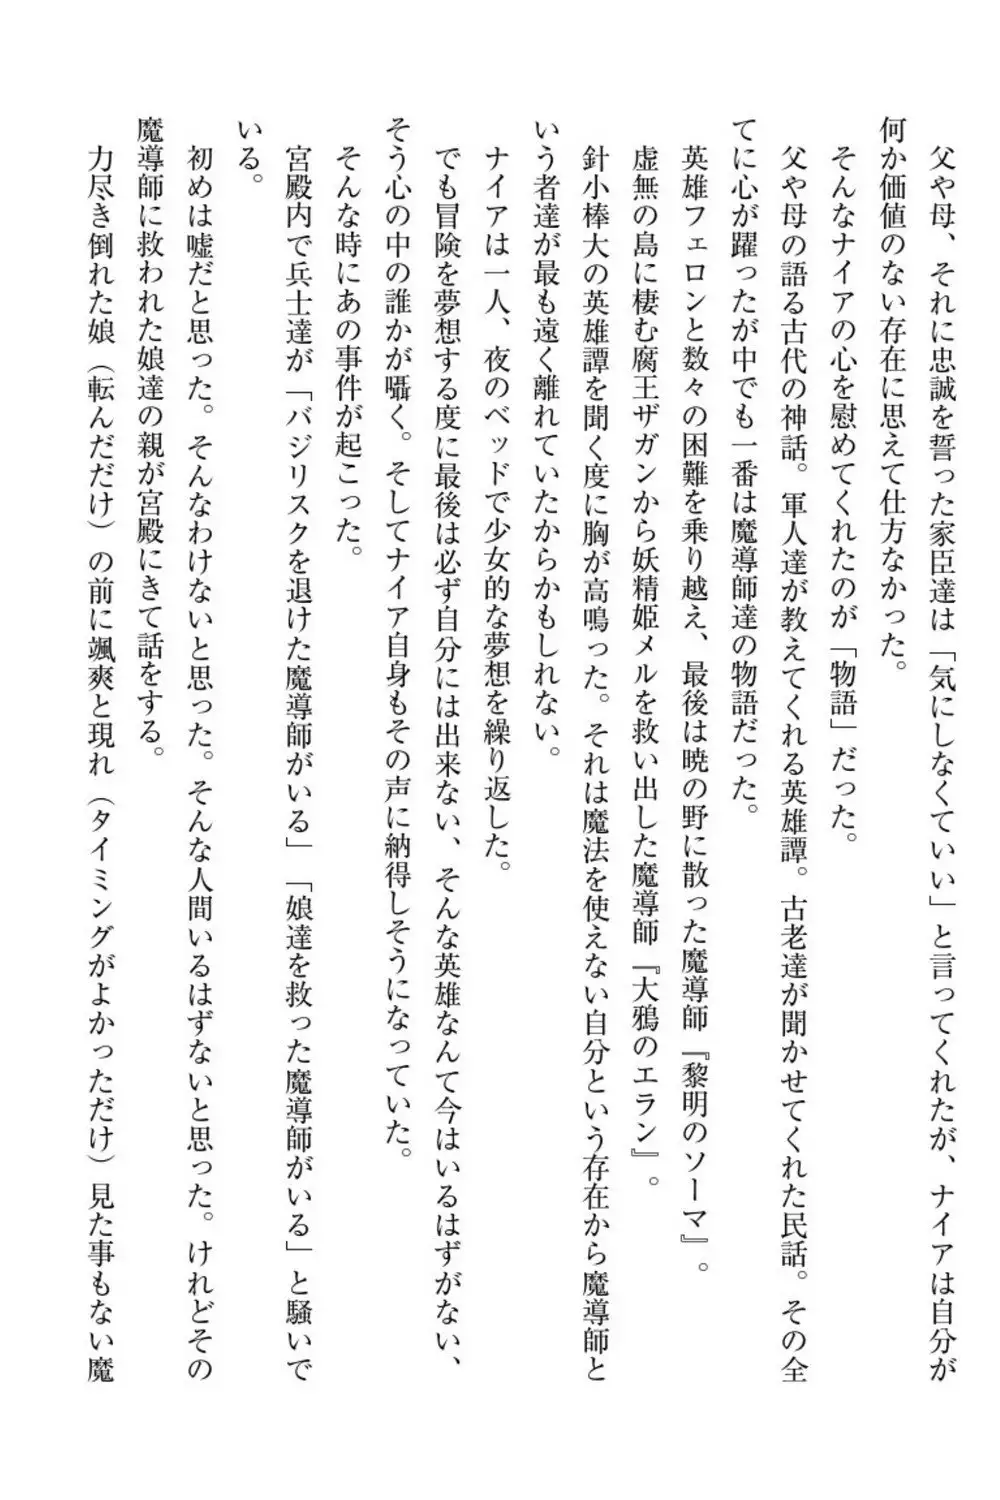 父や母、それに忠誠を誓った家臣達は「気にしなくていい」と言ってくれたが、ナイアは自分が
何か価値のない存在に思えて仕方なかった。
そんなナイアの心を慰めてくれたのが「物語」だった。
父や母の語る古代の神話。軍人達が教えてくれる英雄譚。古老達が聞かせてくれた民話。その全
てに心が躍ったが中でも一番は魔導師達の物語だった。
英雄フェロンと数々の困難を乗り越え、最後は暁の野に散った魔導師『黎明のソーマ』。
虚無の島に棲む腐王ザガンから妖精姫メルを救い出した魔導師『大鴉のエラン』。
針小棒大の英雄譚を聞く度に胸が高鳴った。それは魔法を使えない自分という存在から魔導師と
いう者達が最も遠く離れていたからかもしれない。
ナイアは一人、夜のベッドで少女的な夢想を繰り返した。
でも冒険を夢想する度に最後は必ず自分には出来ない、そんな英雄なんて今はいるはずがない、
そう心の中の誰かが囁く。そしてナイア自身もその声に納得しそうになっていた。
そんな時にあの事件が起こった。
宮殿内で兵士達が「バジリスクを退けた魔導師がいる」「娘達を救った魔導師がいる」と騒いで
いる。
初めは嘘だと思った。そんなわけないと思った。そんな人間いるはずないと思った。けれどその
魔導師に救われた娘達の親が宮殿にきて話をする。
力尽き倒れた娘（転んだだけ）の前に颯爽と現れ（タイミングがよかっただけ）見た事もない魔